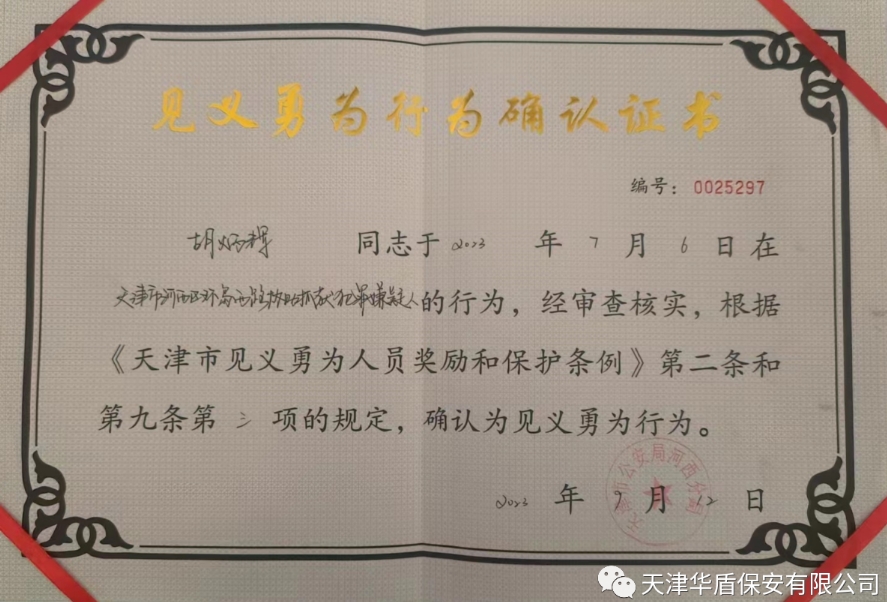 见义勇为行为确认证书
编号：0025297
胡炳程 同志于 2023 年 7 月 6 日在
天津市河西区环岛西路协助抓获犯罪嫌疑人的行为，经审查核实，根据
《天津市见义勇为人员奖励和保护条例》第二条和
第九条第 三 项的规定，确认为见义勇为行为。
天津市公安局河西分局
2023 年 9 月 12 日
天津华盾保安有限公司